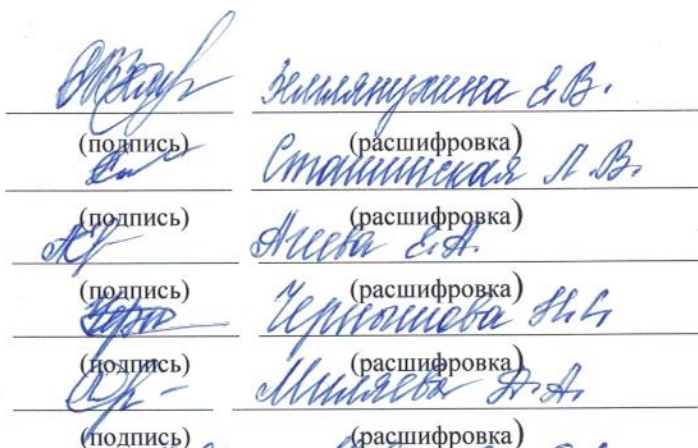 Землянухина Е.В.
(подпись) (расшифровка)
Сташинская Л.В.
(подпись) (расшифровка)
Агеева Е.А.
(подпись) (расшифровка)
Чернышова Н.С.
(подпись) (расшифровка)
Миляева А.А.
(подпись) (расшифровка)